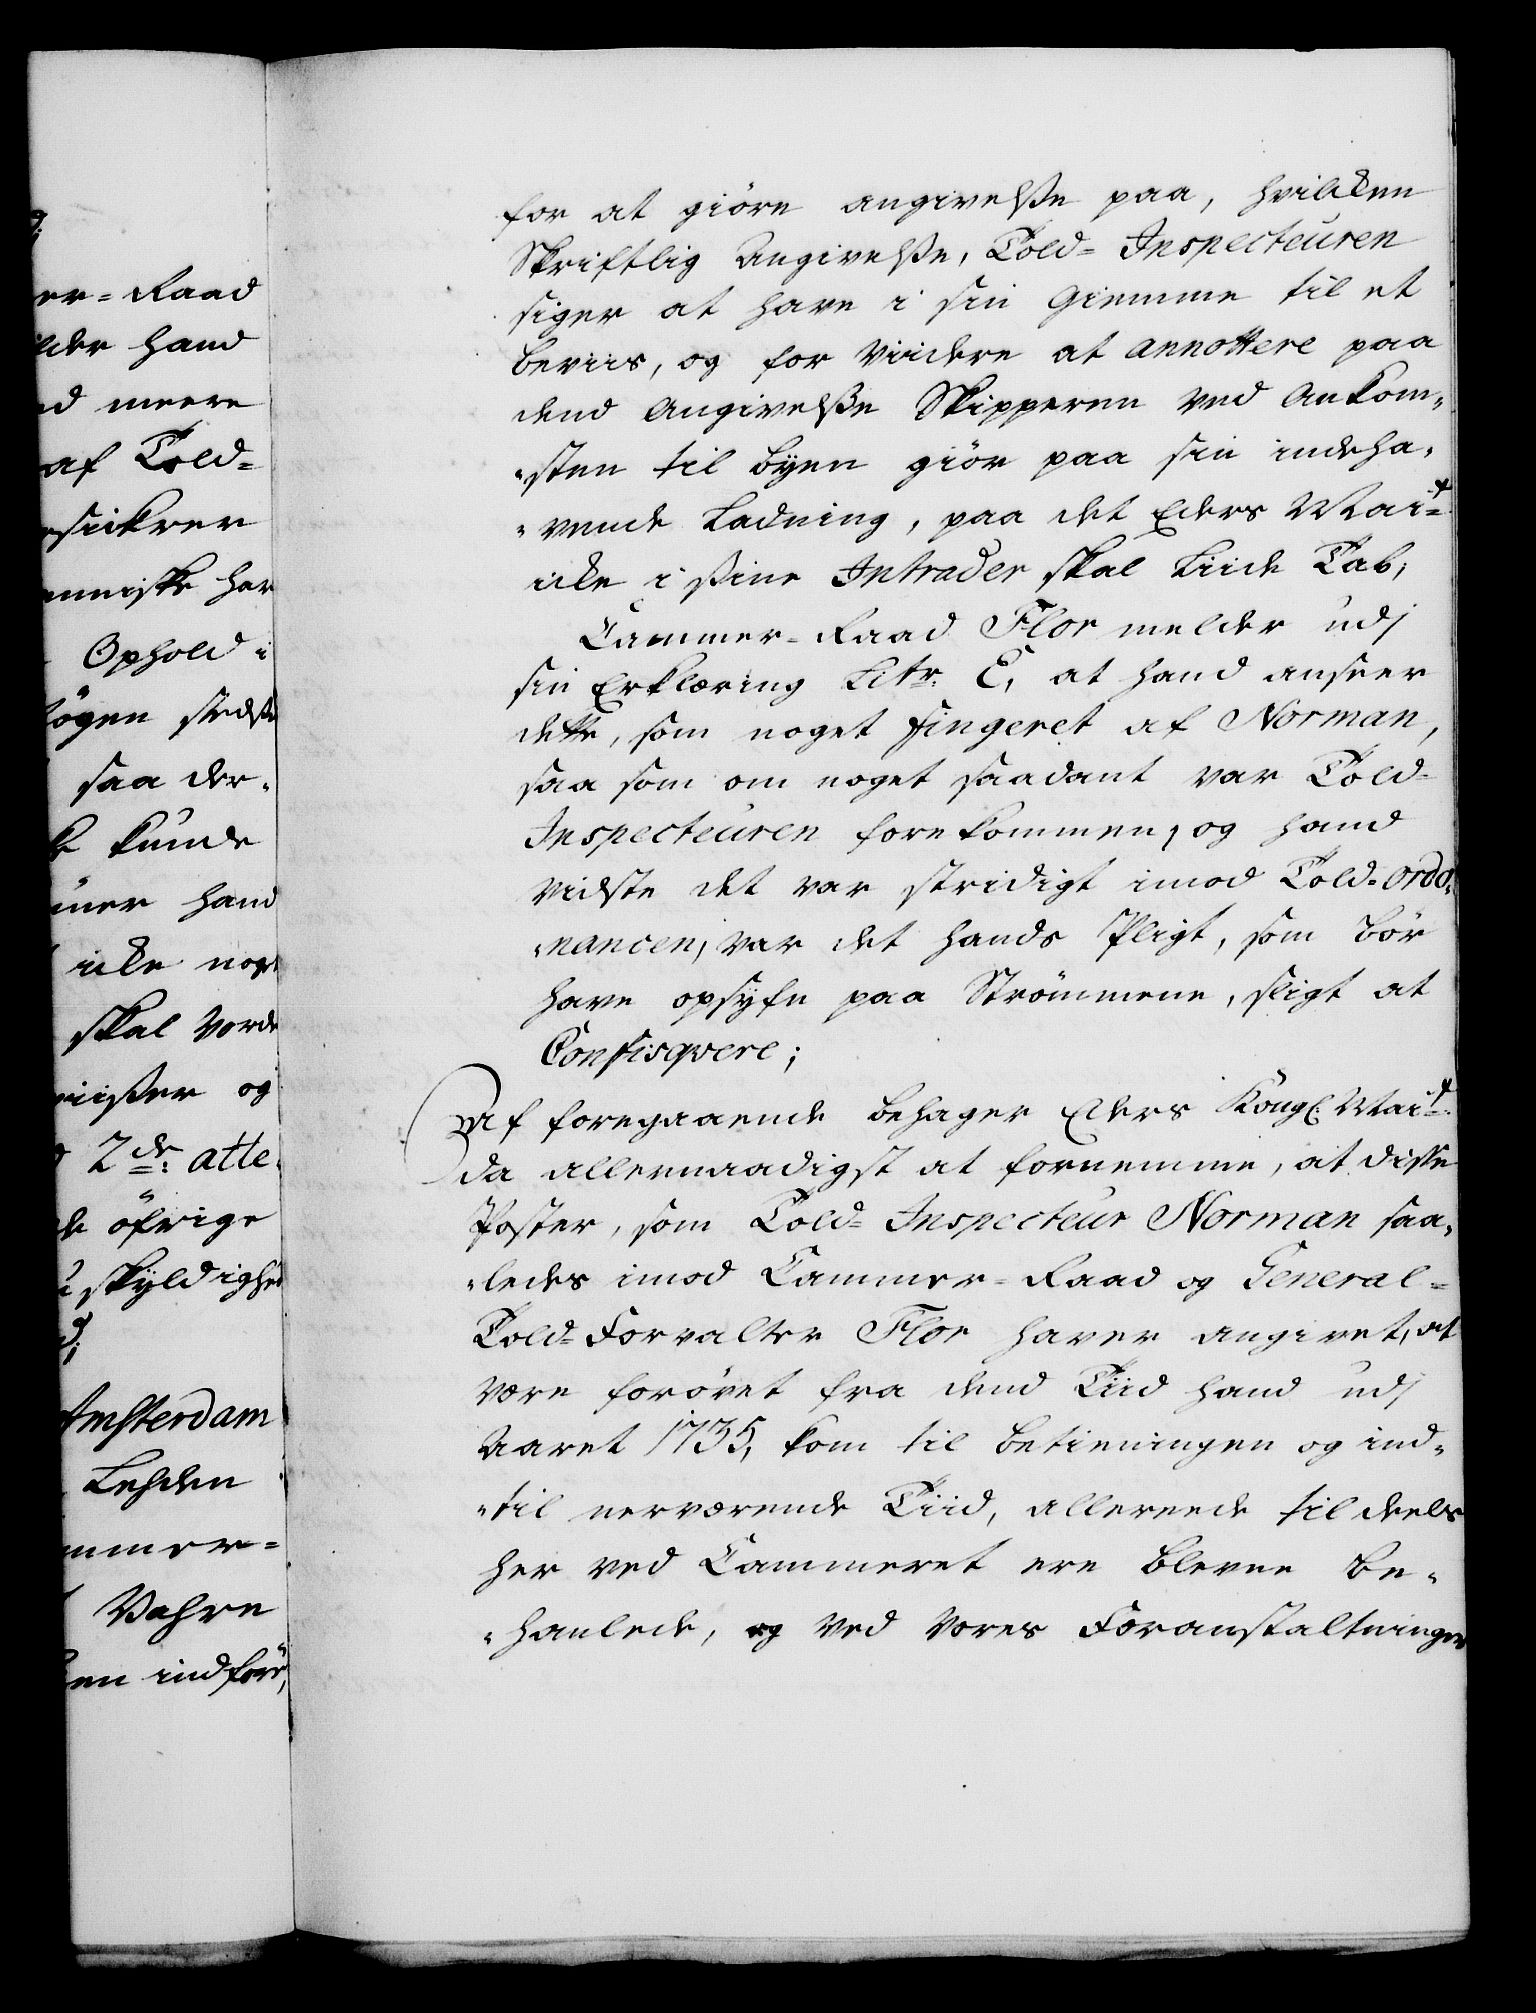 er-Raad
ilder hand
ed meere
af Told-
sickrer
enniske har
Ophold i
øgen
saa der-
kunde
hand
icke noge
skal Vorde
og
2de atte-
de öfrige
skyldighed
Amsterdam
Lehden
mmer-
Vahre
en indføre,
for at giöre angivelße paa, hvilcken
Skriftlig Angivelße, Told- Inspecteuren
siger at have i sin Giemme til et
beviis, og for Viidere at annottere paa
dend Angivelße Skipperen ved Ankom-
-sten til Byen giör paa sin indeha-
-vende Ladning, paa det Eders Mait:
icke i ßine Intrader skal Liide Tab,
Cammer-Raad Flor melder udj
sin Erklæring Litr. E, at hand anseer
dette, som noget fingeret af Norman,
saa som om noget saadant var Told-
Inspecteuren forekommen, og hand
Vidste det var stridigt imod Told-Ordo-
-nancen, var det hands Pligt, som bör
have opsyfn paa Strömmene, sligt at
Confisqvere;
Af foregaaende behager Eders Kongl. Mait:
da allernaadigst at fornemme, at disse
Poster, som Told- Inspecteur Norman saa-
-ledes imod Cammer-Raad og General-
Told-Forvalter Flor haver angivet, at
være forövet fra dend Tiid hand udj
Aaret 1735, kom til betieningen og ind-
-til nerværende Tiid, allereede til deels
her ved Cammeret ere blevne be-
-hanlede, og ved Vores Foranstaltninger